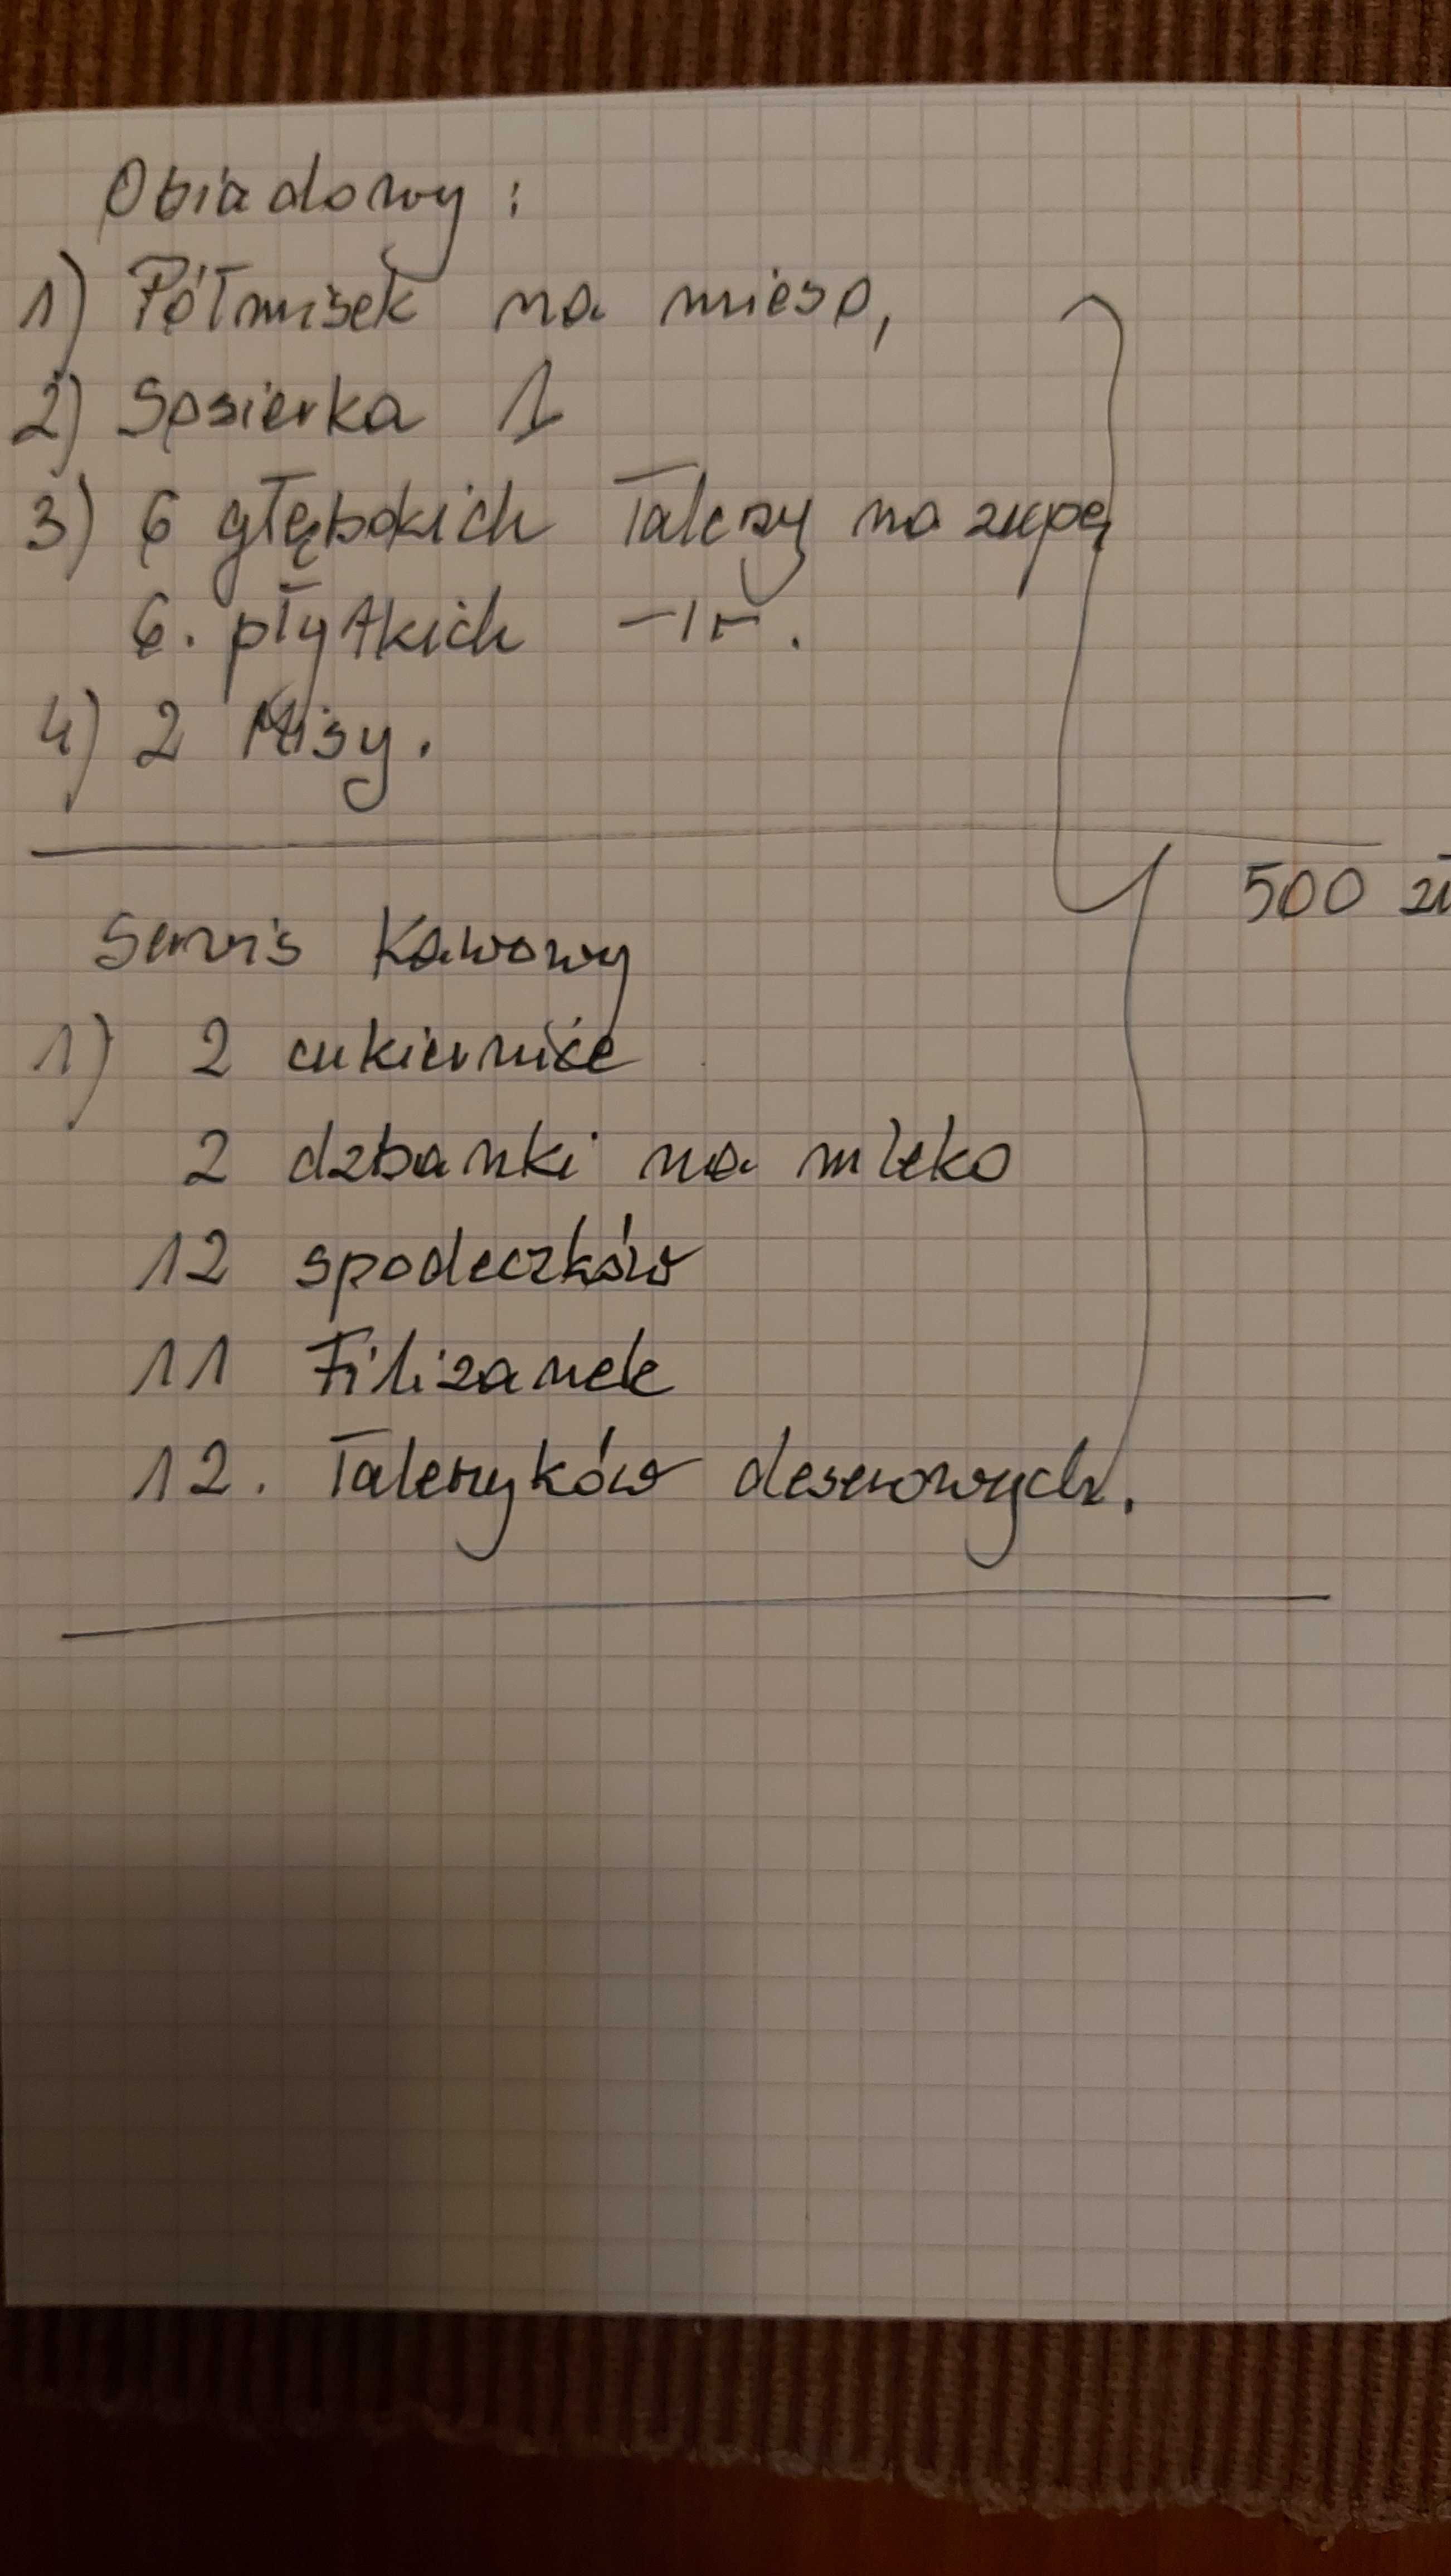 Obiadowy :
1) Półmisek na mięso,
2) Sosierka 1
3) 6 głębokich Talerzy na zupę
6. płytkich -||-.
4) 2 Misy.
500 zł
Serwis Kawowy
1) 2 cukiernice
2 dzbanki na mleko
12 spodeczków
11 Filiżanek
12. Talerzyków deserowych.